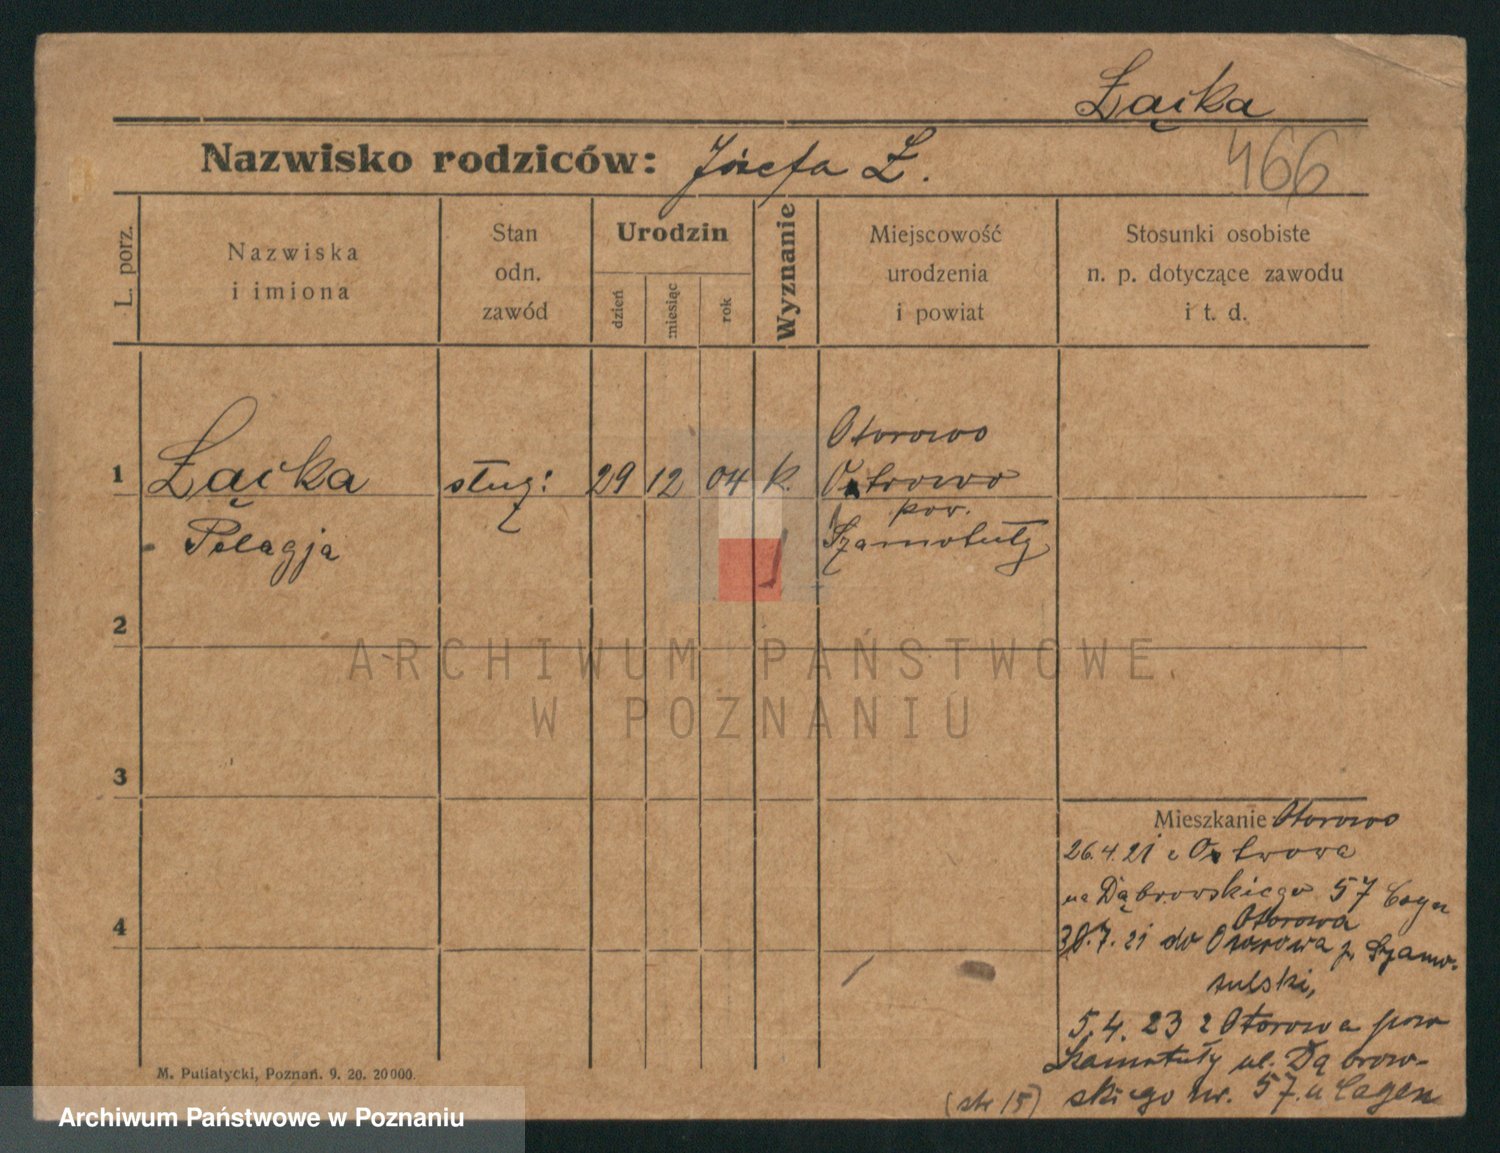 Łącka
Nazwisko rodziców: Józefa Ł.
466
L. porz.
Nazwiska
i imiona
Stan
odn.
zawód
Urodzin
dzień
miesiąc
rok
Wyznanie
Miejscowość
urodzenia
i powiat
Stosunki osobiste
n. p. dotyczące zawodu
i t. d.
Otorowo
1 Łącka służ: 29 12 04 k. Ostrowo
pow.
Pelagja Szamotuły
2
ARCHIWUM PAŃSTWOWE
W POZNANIU
3
Mieszkanie Otorowo
26.4.21 z Ostrowa
na Dąbrowskiego 57
Otorowa
4
30.7.21 do p. Szamo-
tulski,
5.4.23 z Otorowa pow
Szamotuły ul. Dąbrow-
skiego nr. 57. u Cagen
(str 15)
M. Putiatycki, Poznań. 9. 20. 20000.
Archiwum Państwowe w Poznaniu